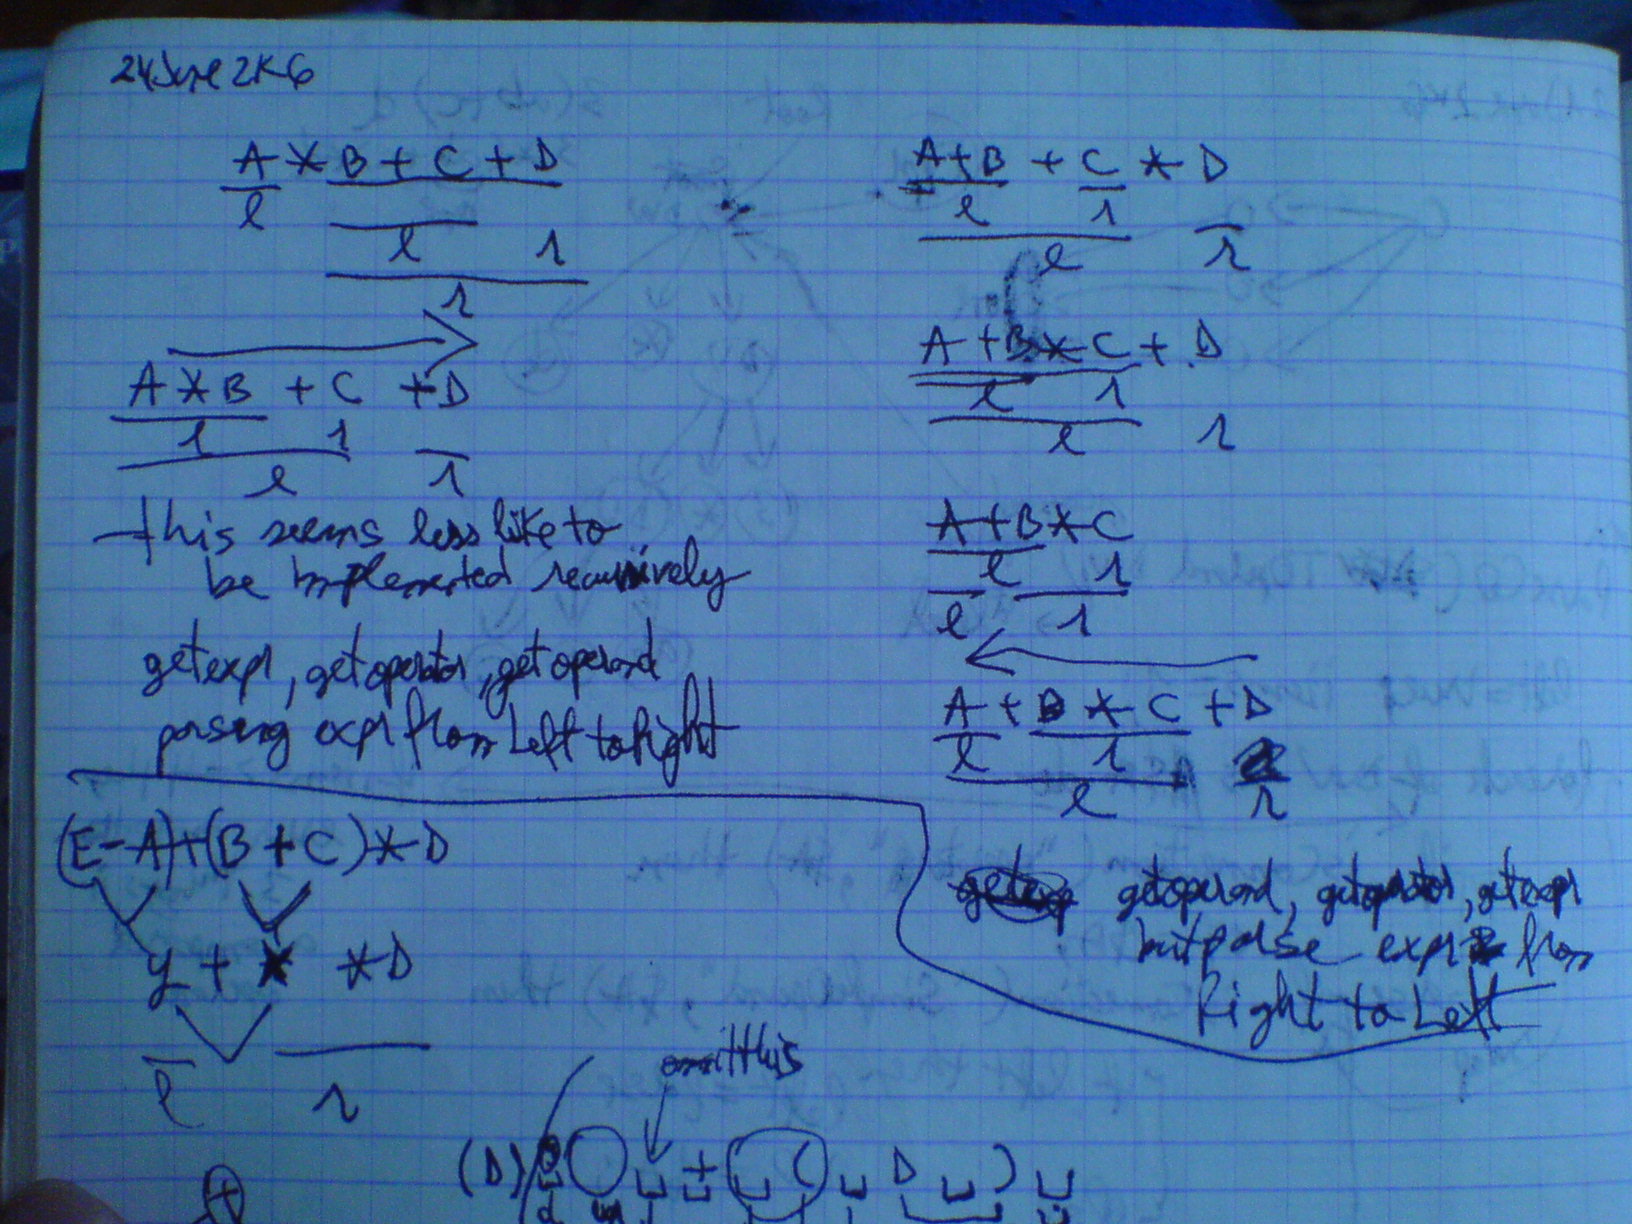 24 June 2K6
A * B + C + D
l
l r
r
A * B + C + D
l r
l r
this seems less like to
be implemented recursively
getexpr, getoperator, getoperand
parsing expr from Left to Right
A + B + C * D
l r
l r
A + B * C + D
l r
l r
A + B * C
l r
l r
A + B * C + D
l r
l r
getoperand, getoperator, getexpr
but parse expr from
Right to Left
(E - A) + (B + C) * D
y + * D
l r
omit this
(D) + ( D )
+